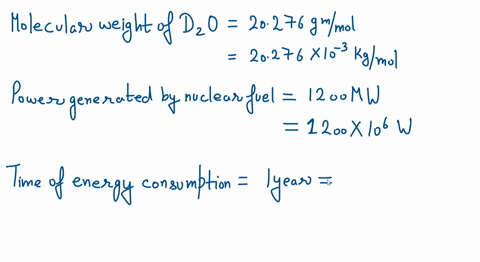 Molecular weight of D₂O = 20.276 gm/mol
= 20.276 × 10⁻³ Kg/mol
Power generated by nuclear fuel = 1200 MW
= 1200 × 10⁶ W
Time of energy consumption = 1 year =